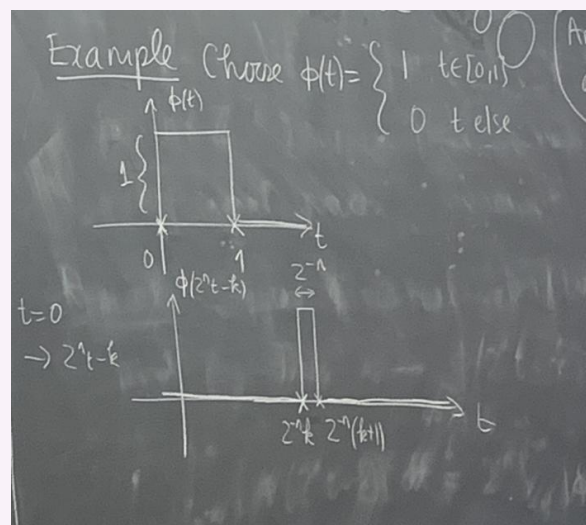 Example Choose ϕ(t)= { 1 t∈[0,1)
0 t else
ϕ(t)
1 {
0 1 t
ϕ(2ⁿt-k)
2⁻ⁿ
t=0
→ 2ⁿt-k
2⁻ⁿk 2⁻ⁿ(k+1) t